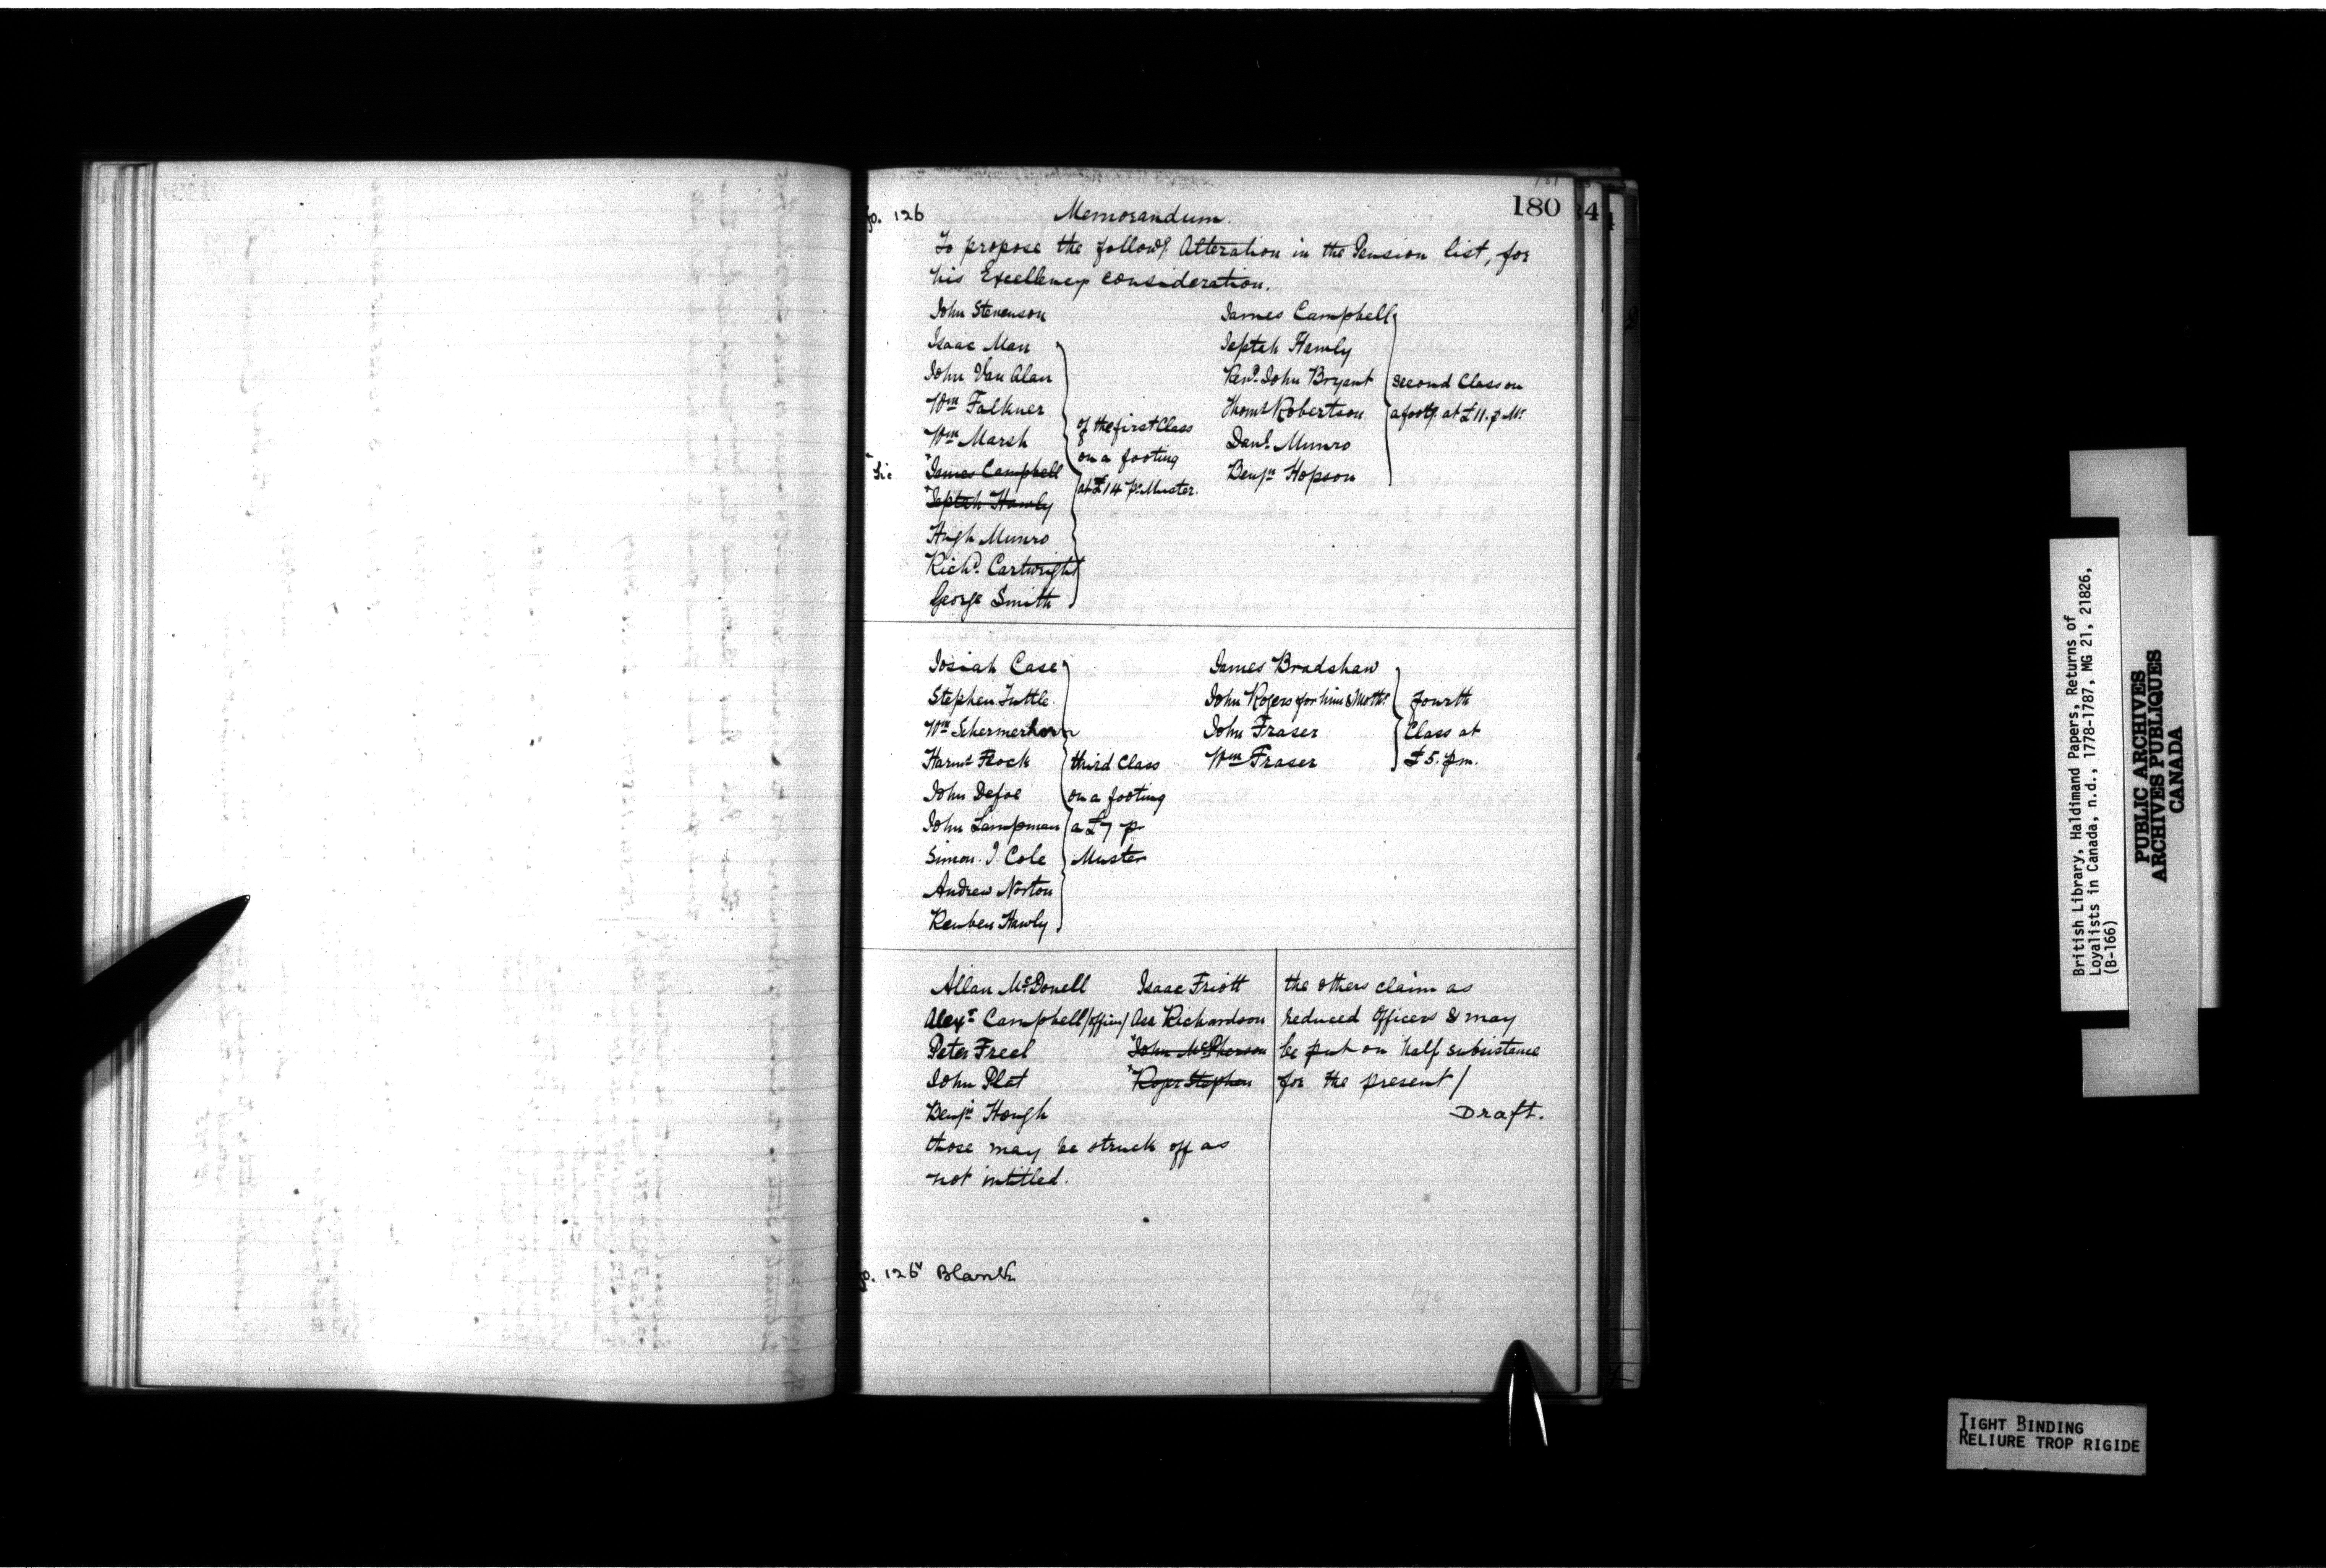 fo. 126
180
Memorandum.
To propose the followg. Alteration in the Pension list, for
his Excellency consideration.
John Stevenson
Isaac Man
John Van Alan
Wm Falkner
Wm Marsh
Sic
*James Campbell
*Jeptah Hawly
Hugh Munro
Richd. Cartwright
George Smith
of the first Class
on a footing
at £14 pr. Muster.
James Campbell
Jeptah Hawly
Revd. John Bryant
Thoms Robertson
Danl. Munro
Benjn Hopson
Second Class on
a footg. at £11. p. Mr.
Josiah Case
Stephen Tuttle
Wm Schermerhorn
Harms Flock
John Defoe
John Lampman
Simon. J. Cole
Andrew Norton
Reuben Hawly
third Class
on a footing
a £7 pr
Muster
James Bradshaw
John Rogers for him & Mothr.
John Fraser
Wm Fraser
fourth
Class at
£5. pm.
Allan McDonell
Alexr Campbell /officer/
Peter Freel
John Plat
Benjn Hough
those may be struck off as
not intitled.
Isaac Friott
Asa Richardson
*John McPherson
*Roger Stephen
the others claim as
reduced Officers & may
be put on half subsistence
for the present /
Draft.
fo. 126v Blank
British Library, Haldimand Papers, Returns of
Loyalists in Canada, n.d., 1778-1787, MG 21, 21826,
(B-166)
PUBLIC ARCHIVES
ARCHIVES PUBLIQUES
CANADA
TIGHT BINDING
RELIURE TROP RIGIDE